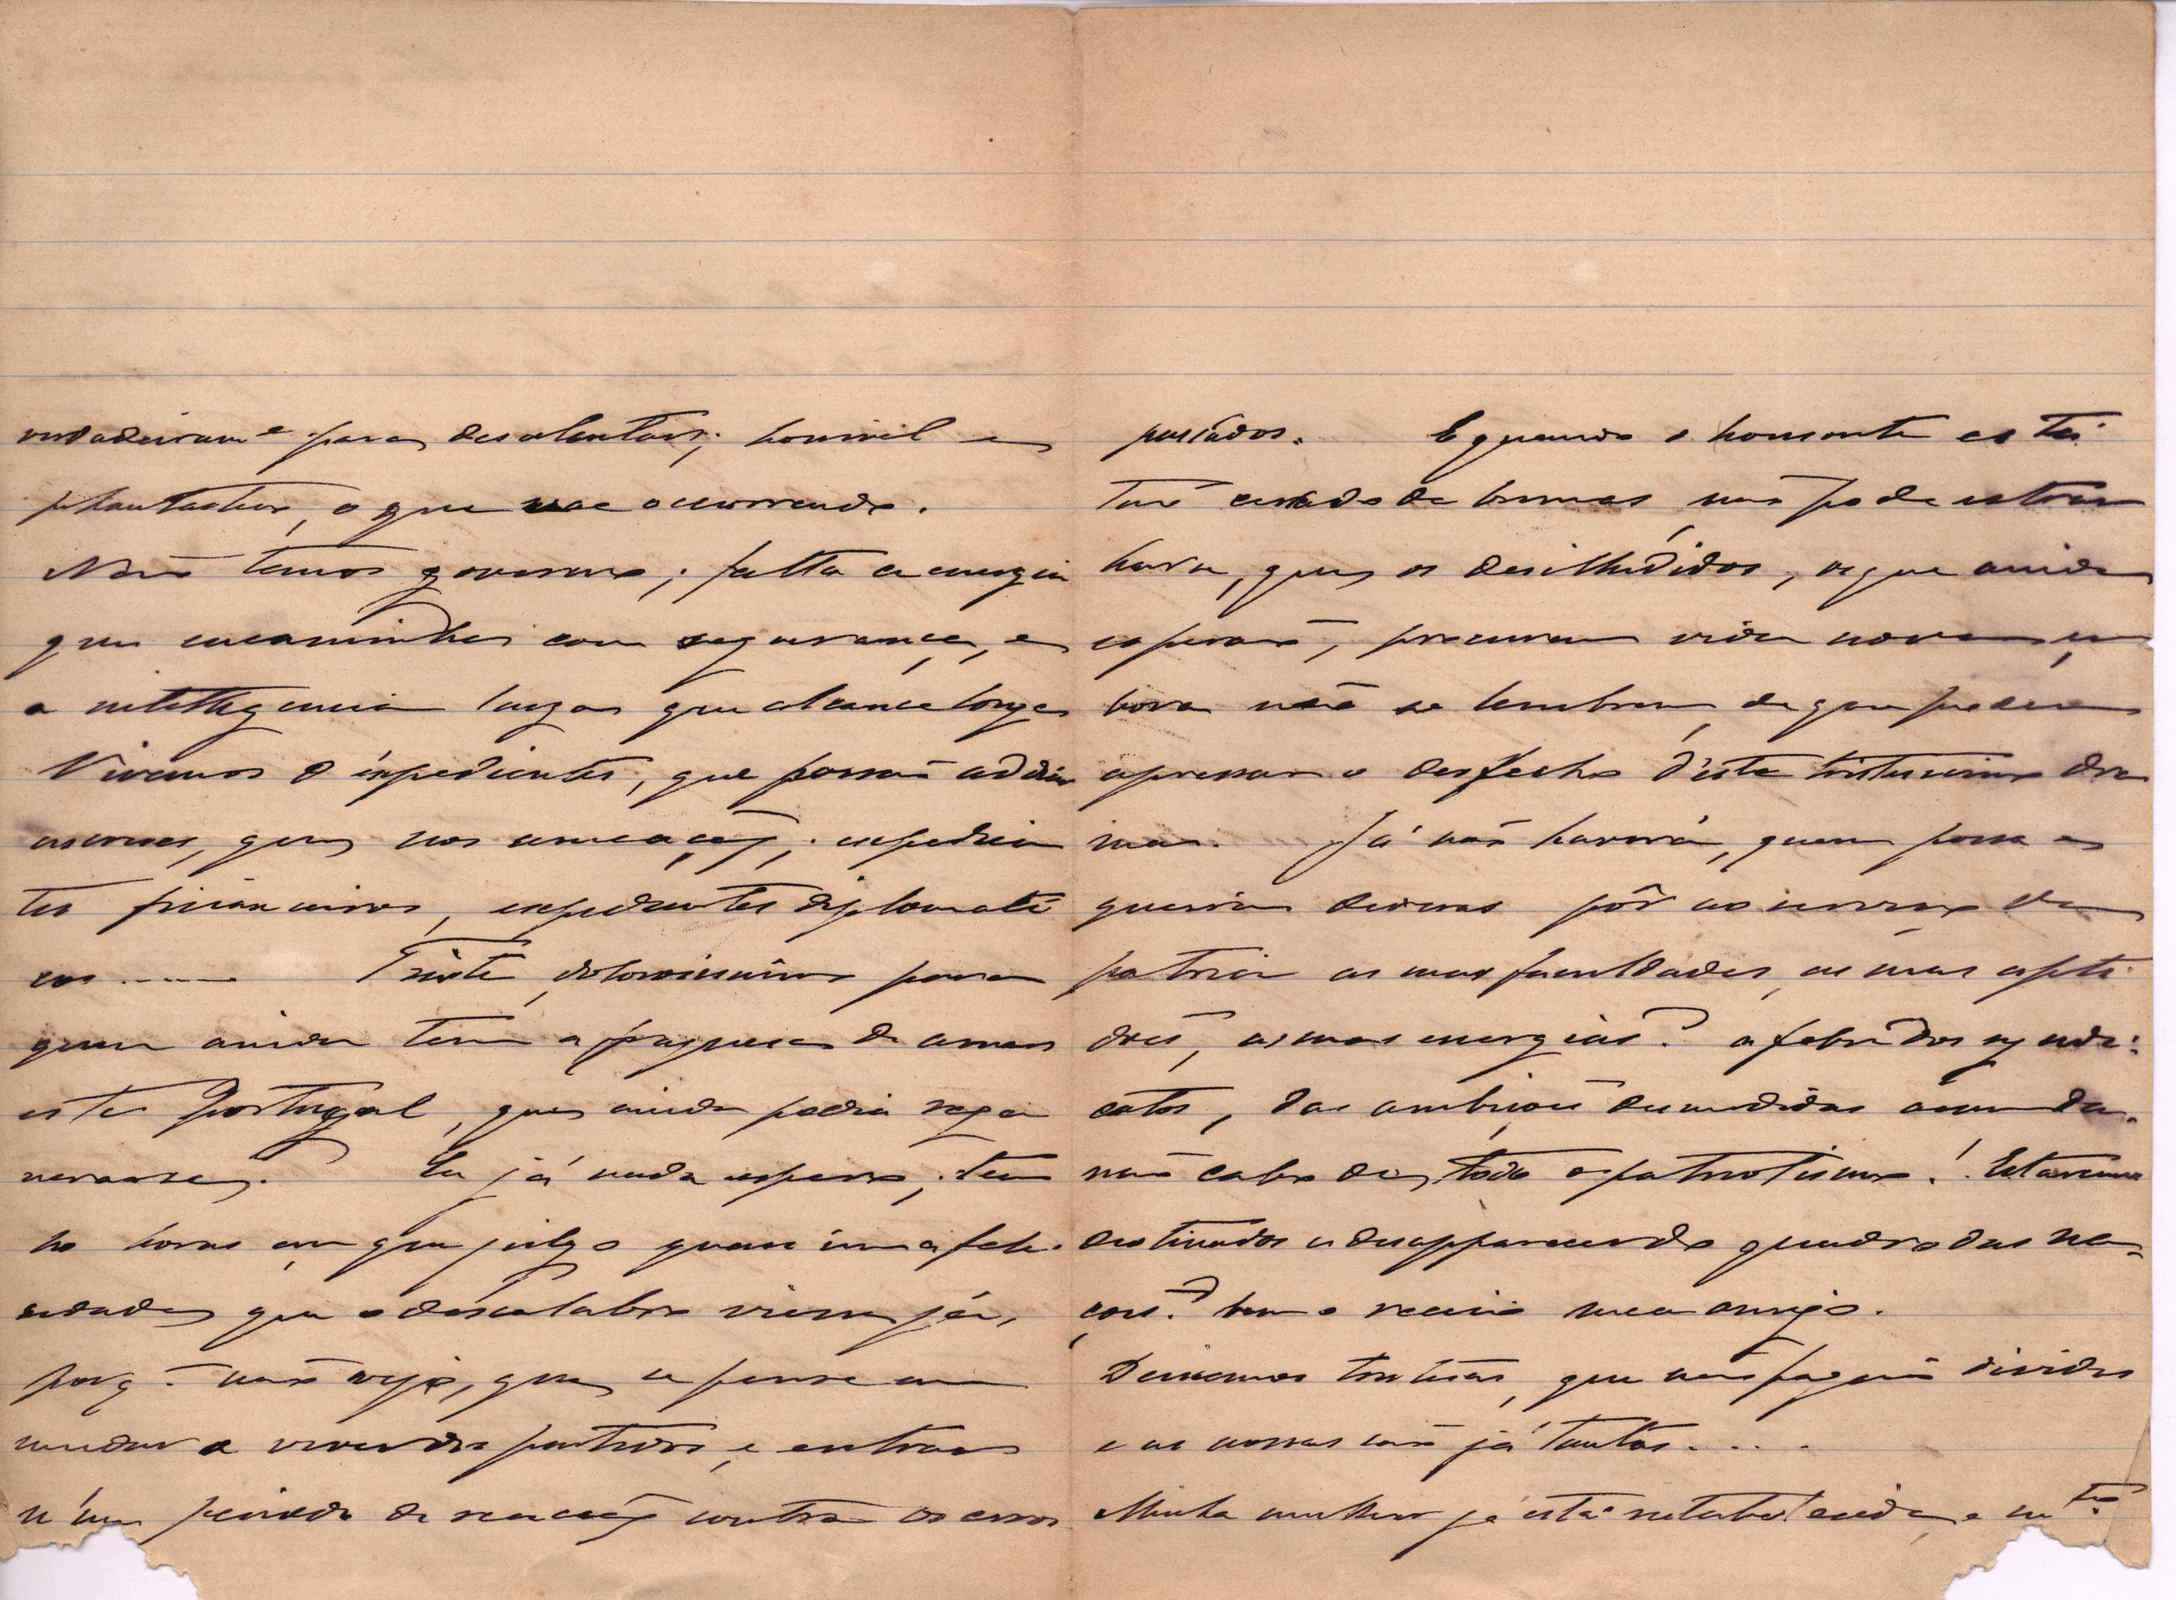 verdadeiram.e para desalentar; horrivel e
phantastico, o que vae occorrendo.
Não temos governo; falta a energia
que encaminhe com segurança, e
a intelligencia larga que alcance longe
Vivemos d'expedientes, que possão addiar
as crises, que nos ameação; expedien
tes financeiros, expedientes diplomati
cos ..... Triste, dolorosissimo para
quem ainda tem a fraqueza de amar
este Portugal, que ainda podia rege
nerar-se. Eu já nada espero; te
nho horas em que julgo quasi uma feli-
cidade que o descalabro viesse já,
porq. não vejo, que se pense em
mudar o viver dos partidos, e entrar
n'um periodo de reacção contra os erros
passados. E quando o horisonte está
tão cerrado de brumas, não pode estra
nhar, que os desilludidos, os que ainda
esperão, procurem vida nova em
bora não se lembrem, de que podem
apressar o desfecho d'este tristissimo dra
ma. Já não haverá, quem possa e
queira deveras pôr ao serviço da
patria as suas faculdades, as suas apti
dões, as suas energias? a febre dos syndi-
catos, das ambições desmedidas
não cabe de todo o patriotismo! Estaremos
destinados a desapparecer do quadro das na-
ções? tenho receio meu amigo.
Deixemos tristezas, que não pagão dividas
e as nossas são já tantas....
Minha mulher já está restabelecida, e m.to